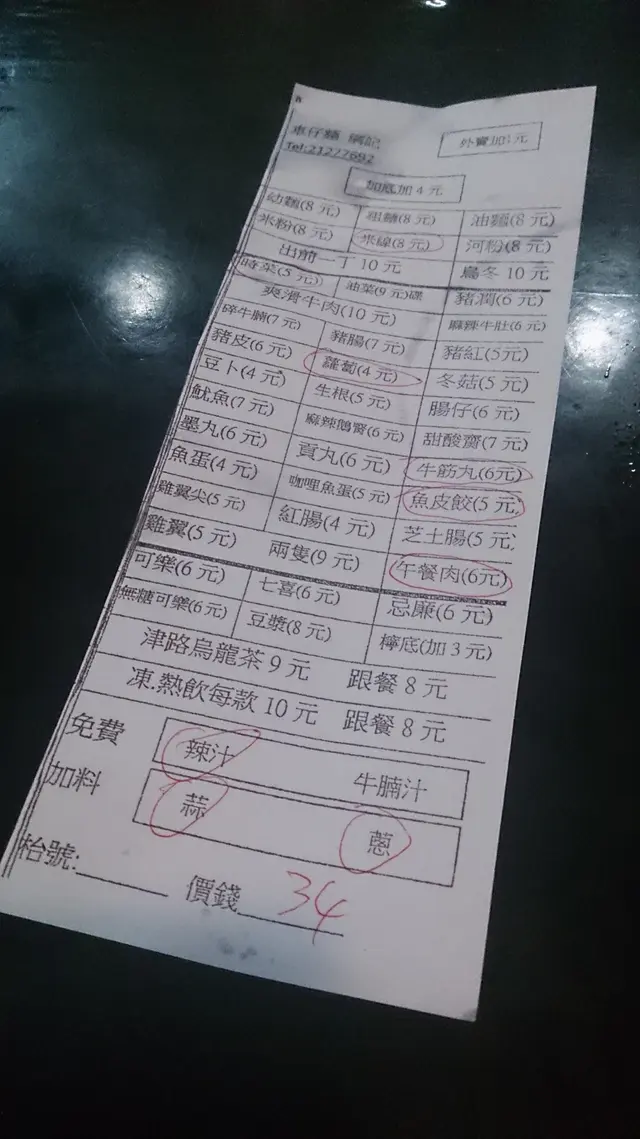 車仔麵 網記 外賣加1元
Tel:21277692
加底加 4 元
幼麵(8 元) 粗麵(8 元) 油麵(8 元)
米粉(8 元) 米線(8 元) 河粉(8 元)
出前一丁 10 元 烏冬 10 元
時菜(5 元) 油菜(9 元)碟 豬潤(6 元)
爽滑牛肉(10 元) 麻辣牛肚(6 元)
碎牛腩(7 元) 豬腸(7 元) 豬紅(5元)
豬皮(6 元) 蘿蔔(4 元) 冬菇(5 元)
豆卜(4 元) 生根(5 元) 腸仔(6 元)
魷魚(7 元) 麻辣鵝腎(6 元) 甜酸齋(7 元)
墨丸(6 元) 貢丸(6 元) 牛筋丸(6元)
魚蛋(4 元) 咖哩魚蛋(5 元) 魚皮餃(5 元)
雞翼尖(5 元) 紅腸(4 元) 芝士腸(5 元)
雞翼(5 元) 兩隻(9 元) 午餐肉(6元)
可樂(6 元) 七喜(6 元) 忌廉(6 元)
無糖可樂(6 元) 豆漿(8 元) 檸底(加 3 元)
津路烏龍茶 9 元 跟餐 8 元
凍.熱飲每款 10 元 跟餐 8 元
免費 辣汁 牛腩汁
加料 蒜 蔥
枱號: 價錢 34